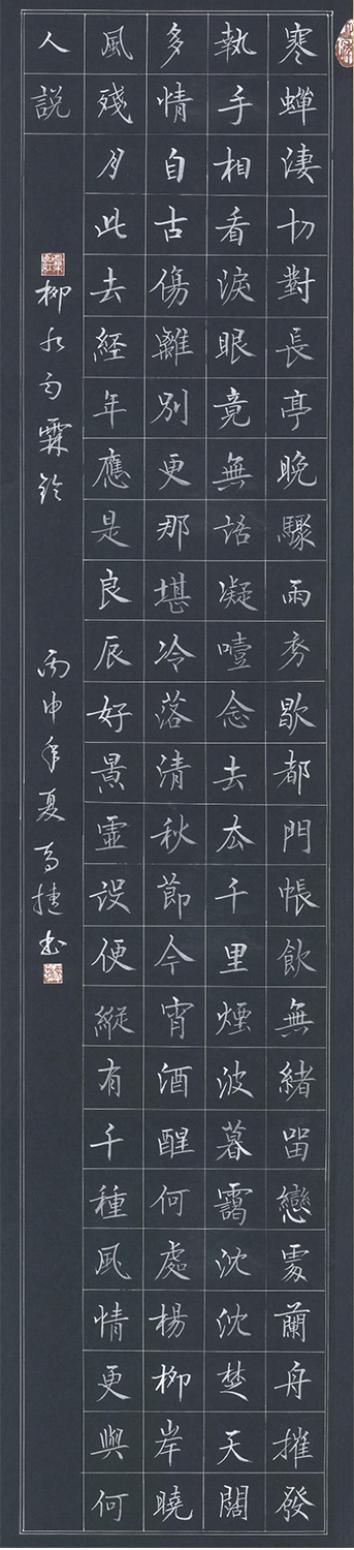 寒蟬淒切對長亭晚驟雨方歇都門帳飲無緒留戀處蘭舟摧發
執手相看淚眼竟無語凝噎念去去千里煙波暮靄沈沈楚天闊
多情自古傷離別更那堪冷落清秋節今宵酒醒何處楊柳岸曉
風殘月此去經年應是良辰好景虛設便縱有千種風情更與何
人說
柳永雨霖鈴
丙申年夏高捷书